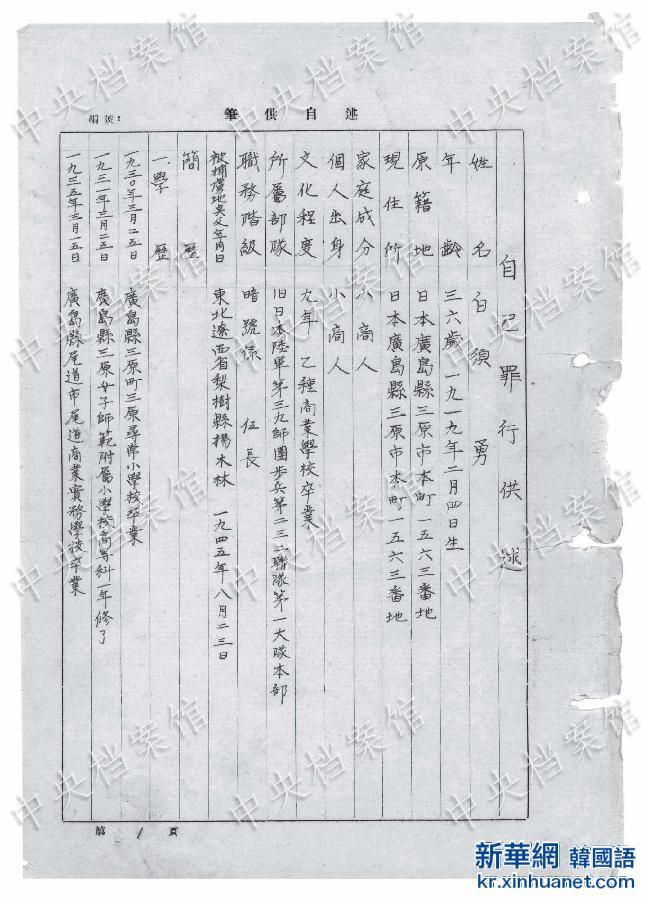 編號：
述自供筆
自己罪行供述
姓名 白須勇
年齡 三六歲 一九一九年二月四日生
原籍地 日本廣島縣三原市本町一五六三番地
現住所 日本廣島縣三原市本町一五六三番地
家庭成分 小商人
個人出身 小商人
文化程度 九年 乙種商業學校卒業
所屬部隊 旧日本陸軍第三九師團步兵第二三二聯隊第一大隊本部
職務階級 暗號 伍長
被捕虜地 年月日 東北遼西省梨樹縣楊木林 一九四五年八月二三日
簡歷
一.學歷
一九三〇年三月二五日 廣島縣三原町三原尋常小學校卒業
一九三一年三月二五日 廣島縣三原女子師範附屬小學校高等科一年修了
一九三五年三月一五日 廣島縣尾道市尾道商業實務學校卒業
第1頁
中央档案馆
中央档案馆
中央档案馆
中央档案馆
中央档案馆
中央档案馆
中央档案馆
中央档案馆
新華網 韓國語
kr.xinhuanet.com